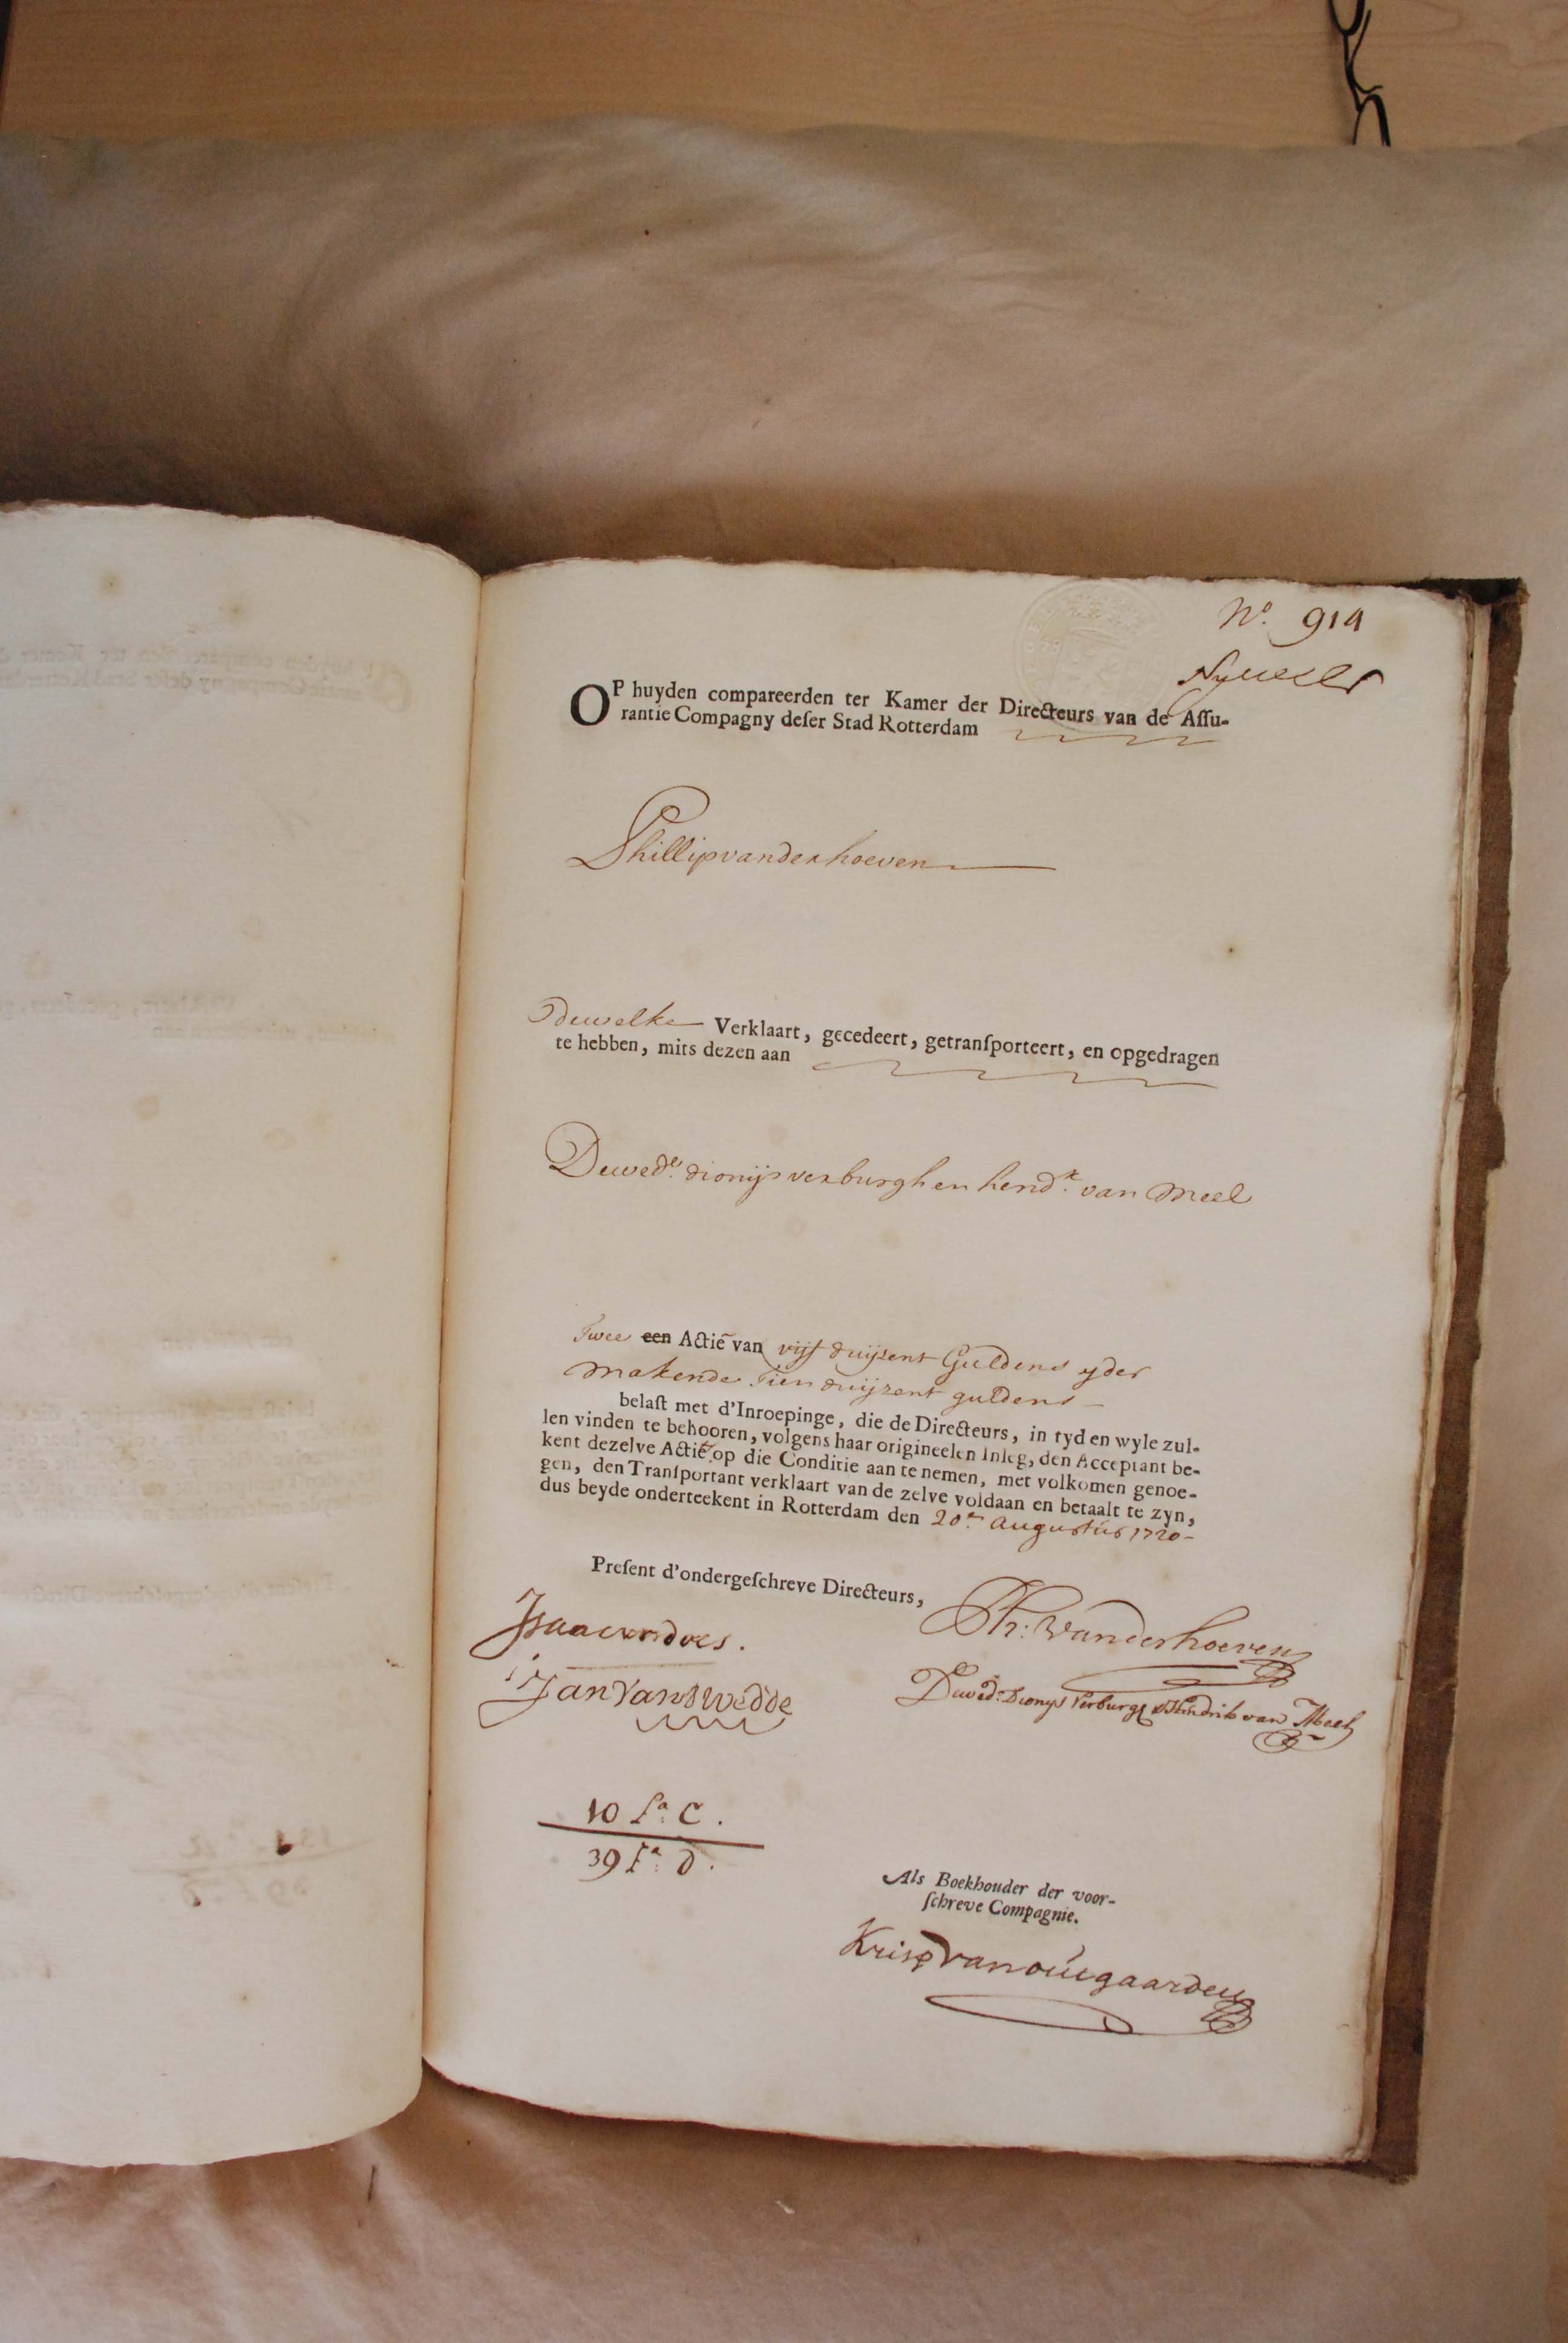 No. 914
OP huyden compareerden ter Kamer der Directeurs van de Aſſu-
rantie Compagny deſer Stad Rotterdam
Phillip vander hoeven
Dewelke Verklaart, gecedeert, getranſporteert, en opgedragen
te hebben, mits dezen aan
De wede. dionijs verburgh en hendk. van Meel
Twee een Actiē van vijf duijzent Guldens yder
Makende Tien duijzent guldens
belaſt met d'Inroepinge, die de Directeurs, in tyd en wyle zul-
len vinden te behooren, volgens haar origineelen Inleg, den Acceptant be-
kent dezelve Actie op die Conditie aan te nemen, met volkomen genoe-
gen, den Tranſportant verklaart van de zelve voldaan en betaalt te zyn,
dus beyde onderteekent in Rotterdam den 20en. Augustús 1720-
Preſent d'ondergeſchreve Directeurs,
Ph: Vanderhoeven
Isaac vn does.
De wed: Dionys Verburg & Hendrik van Meel
Jan Van Twedde
10 Fa. C.
39 Fa. D.
Als Boekhouder der voor-
ſchreve Compagnie.
Krisp van oúcgaarden